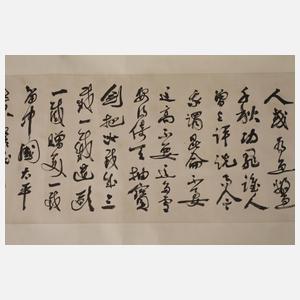 人或为鱼鳖
千秋功罪誰人
曾与评说而今
我谓昆仑不要
这高不要这多雪
安得倚天抽寶
剑把汝裁为三
截一截遗欧
一截赠美一截
留中國太平